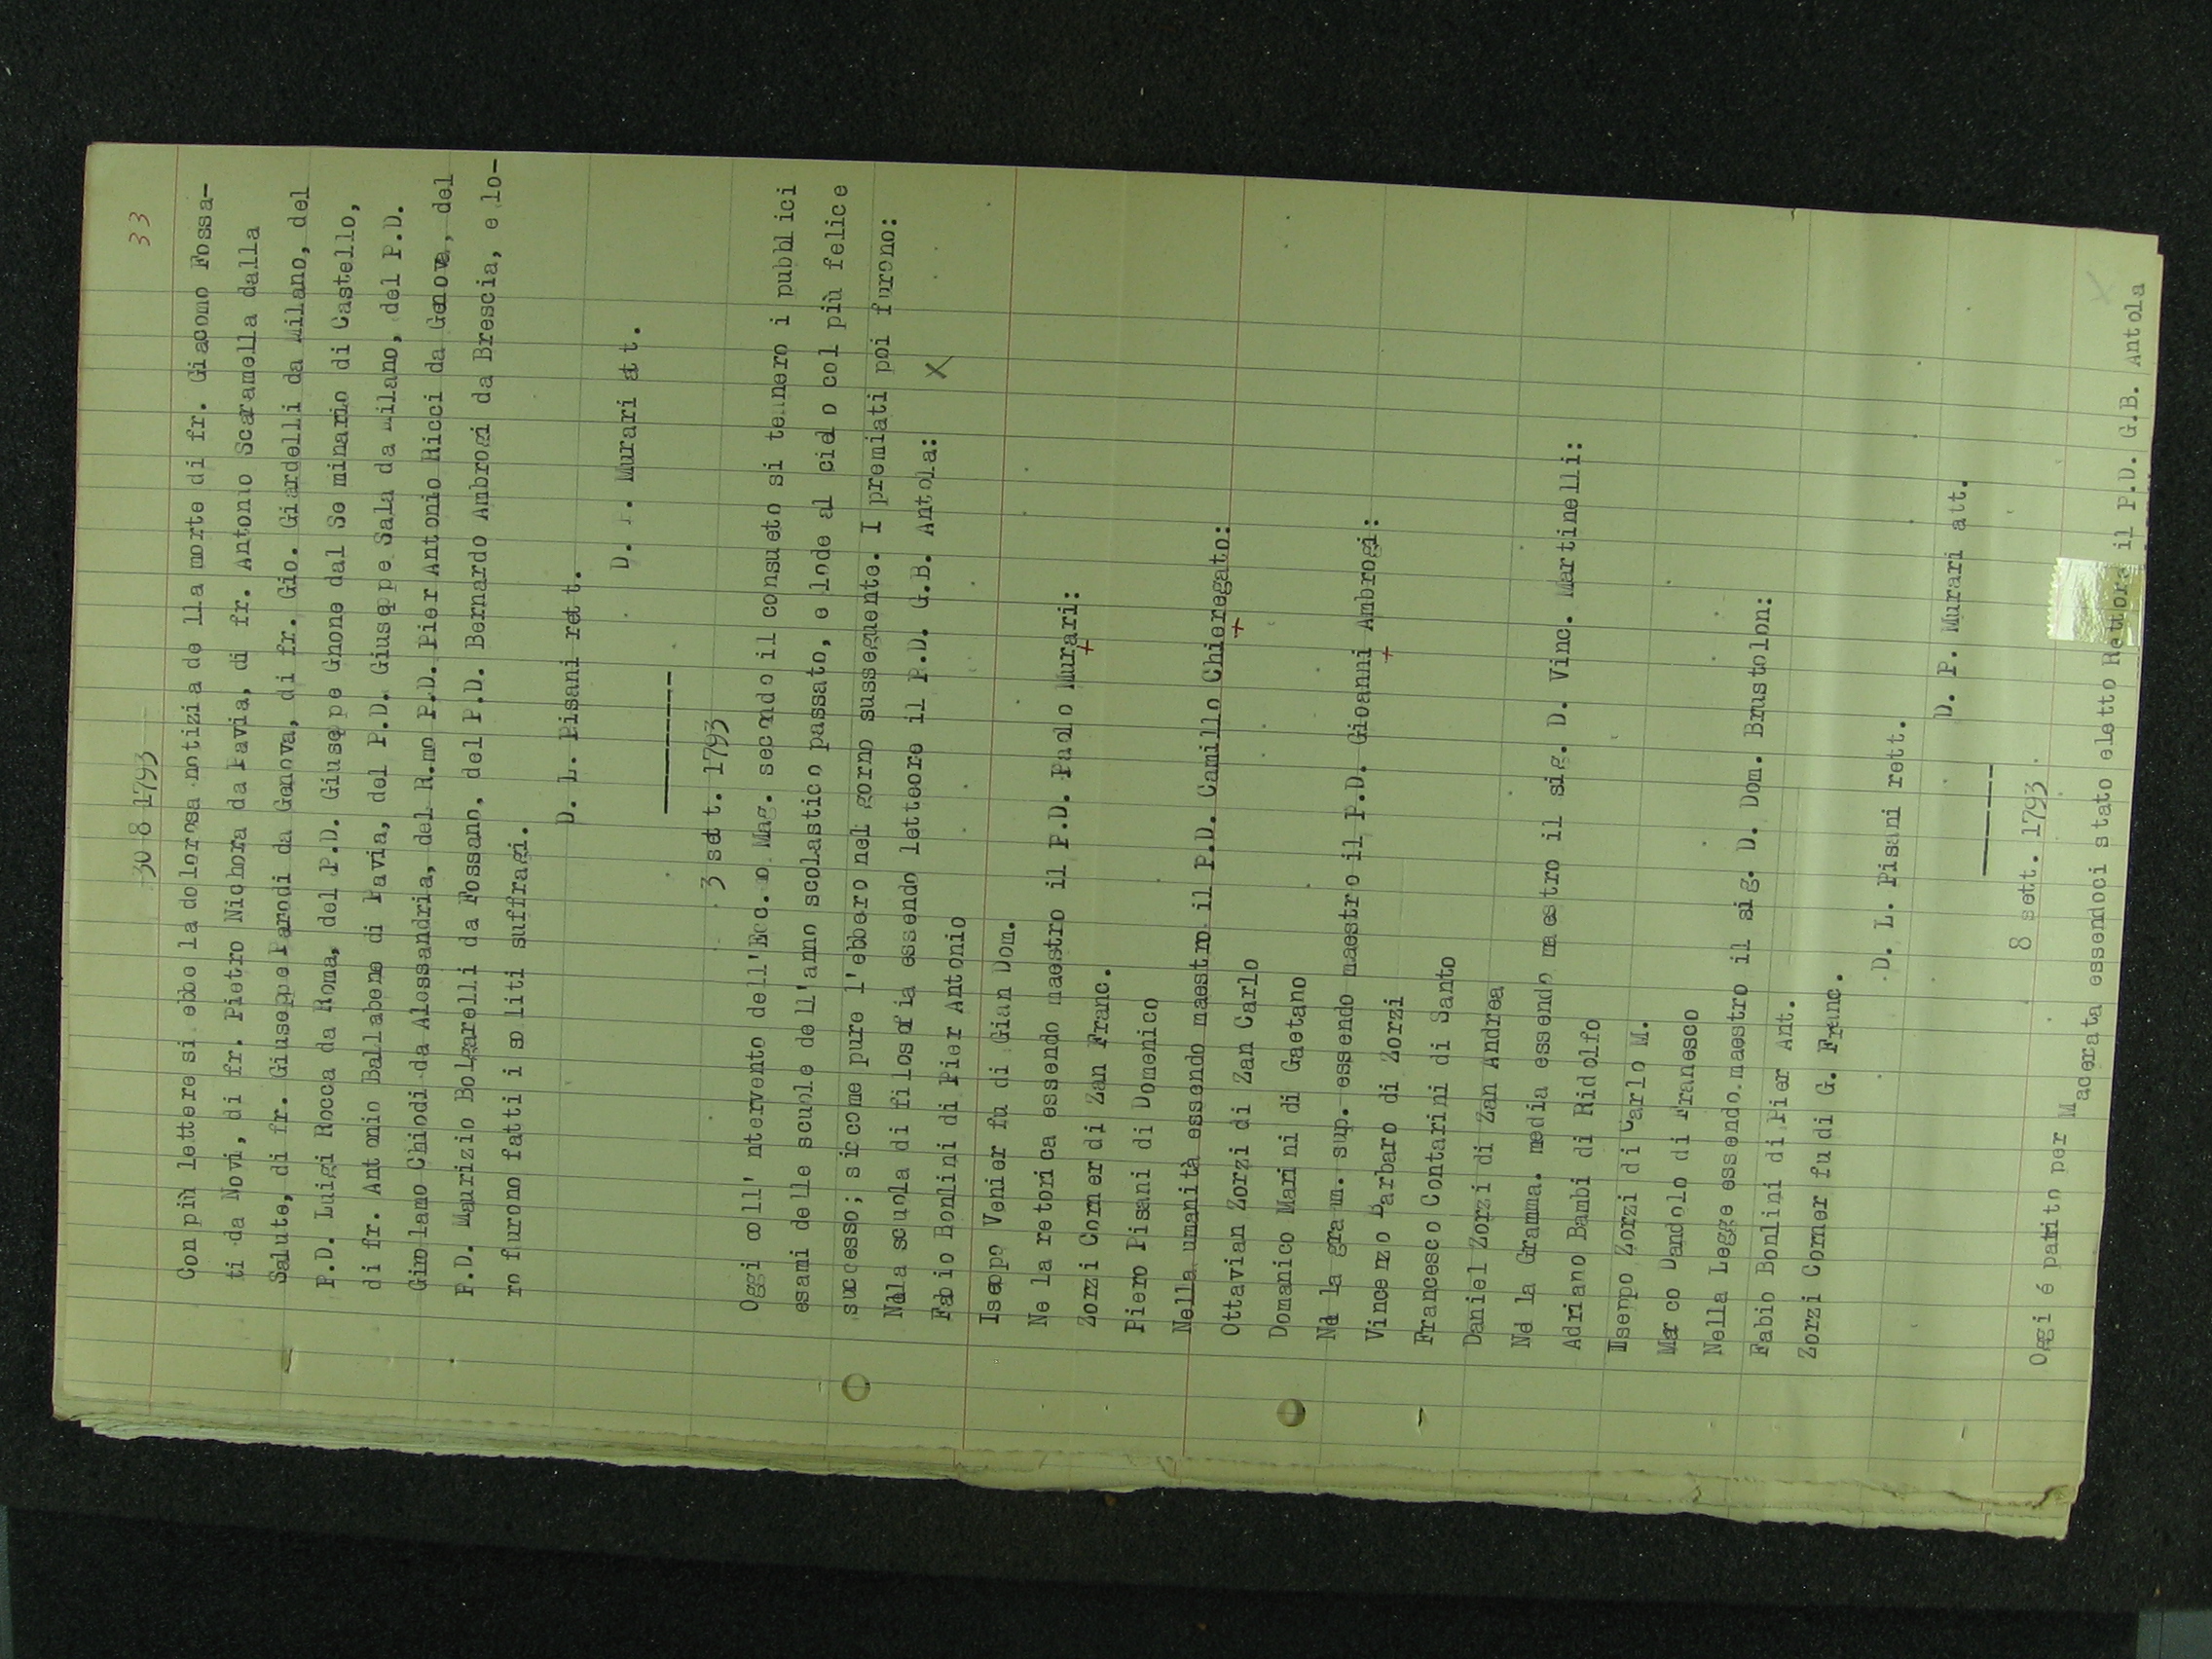 33
30 8 1793
Con più lettere si ebbe la dolorosa notizia de lla morte di fr. Giacomo Fossa-
ti da Novi, di fr. Pietro Nichora da Pavia, di fr. Antonio Scaramella dalla
Salute, di fr. Giuseppe Parodi da Genova, di fr. Gio. Giardelli da Milano, del
P.D. Luigi Rocca da Roma, del P.D. Giuseppe Gnone dal Se minario di Castello,
di fr. Ant onio Ballabene di Pavia, del P.D. Giuseppe Sala da Milano, del P.D.
Girolamo Chiodi da Alessandria, del R.mo P.D. Pier Antonio Ricci da Genova, del
P.D. Maurizio Bolgarelli da Fossano, del P.D. Bernardo Ambrogi da Brescia, e lo-
ro furono fatti i so liti suffragi.
D. L. Pisani rett.
D. . Murari att.
--------
3 sett. 1793
Oggi coll' ntervento dell'Ecc. o Mag. secondo il consueto si tennero i pubblici
esami delle scuole dell'anno scolastico passato, e lode al cielo col più felice
successo; siccome pure l'ebbero nel gorno susseguente. I premiati poi furono:
Nella scuola di filosofia essendo letteore il P.D. G.B. Antola: X
Fabio Bonlini di Pier Antonio
Iseopo Venier fu di Gian Dom.
Ne la retorica essendo maestro il P.D. Paolo Murari:
+
Zorzi Corner di Zan Franc.
Piero Pisani di Domenico
Nella umanità essendo maestro il P.D. Camillo Chieregato:
+
Ottavian Zorzi di Zan Carlo
Domanico Marini di Gaetano
Nel la gram. sup. essendo maestro il P.D. Gioanni Ambrogi:
+
Vincenzo Barbaro di Zorzi
Francesco Contarini di Santo
Daniel Zorzi di Zan Andrea
Ne la Gramma. media essendo maestro il sig. D. Vinc. Martinelli:
Adriano Bambi di Ridolfo
Isenpo Zorzi di Carlo M.
Marco Dandolo di Franesco
Nella Legge essendo.maestro il sig. D. Dom. Brustolon:
Fabio Bonlini di Pier Ant.
Zorzi Corner fu di G. Franc.
D. L. Pisani rett.
D. P. Murari att.
------
8 sett. 1793
X
Oggi é patito per Macerata essendoci stato eletto Rettora il P.D. G.B. Antola